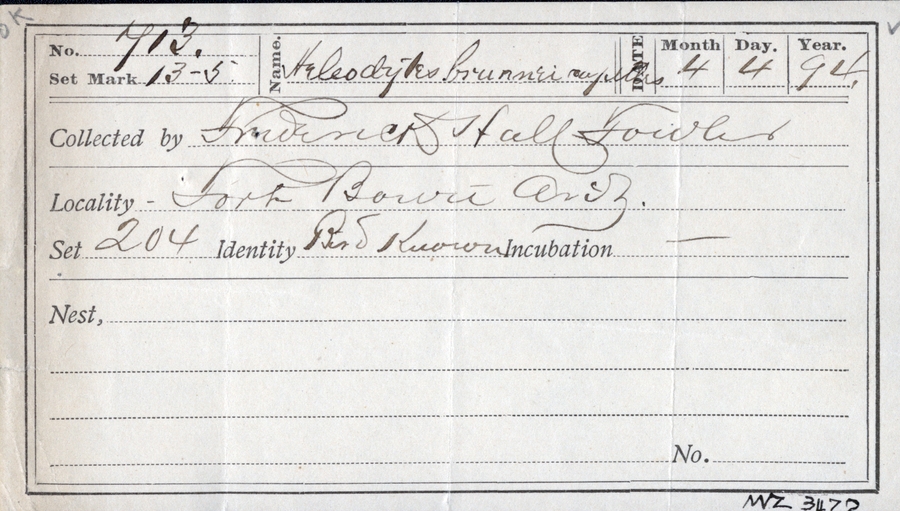 OK
No. 713. Name. Heleodytes brunneicapillus DATE Month 4 Day. 4 Year. 94.
Set Mark 13-5
Collected by Frederick Hall Fowler
Locality - Fort Bowie Ariz.
Set 204 Identity Bird Known Incubation —
Nest,
No.
MVZ 3477